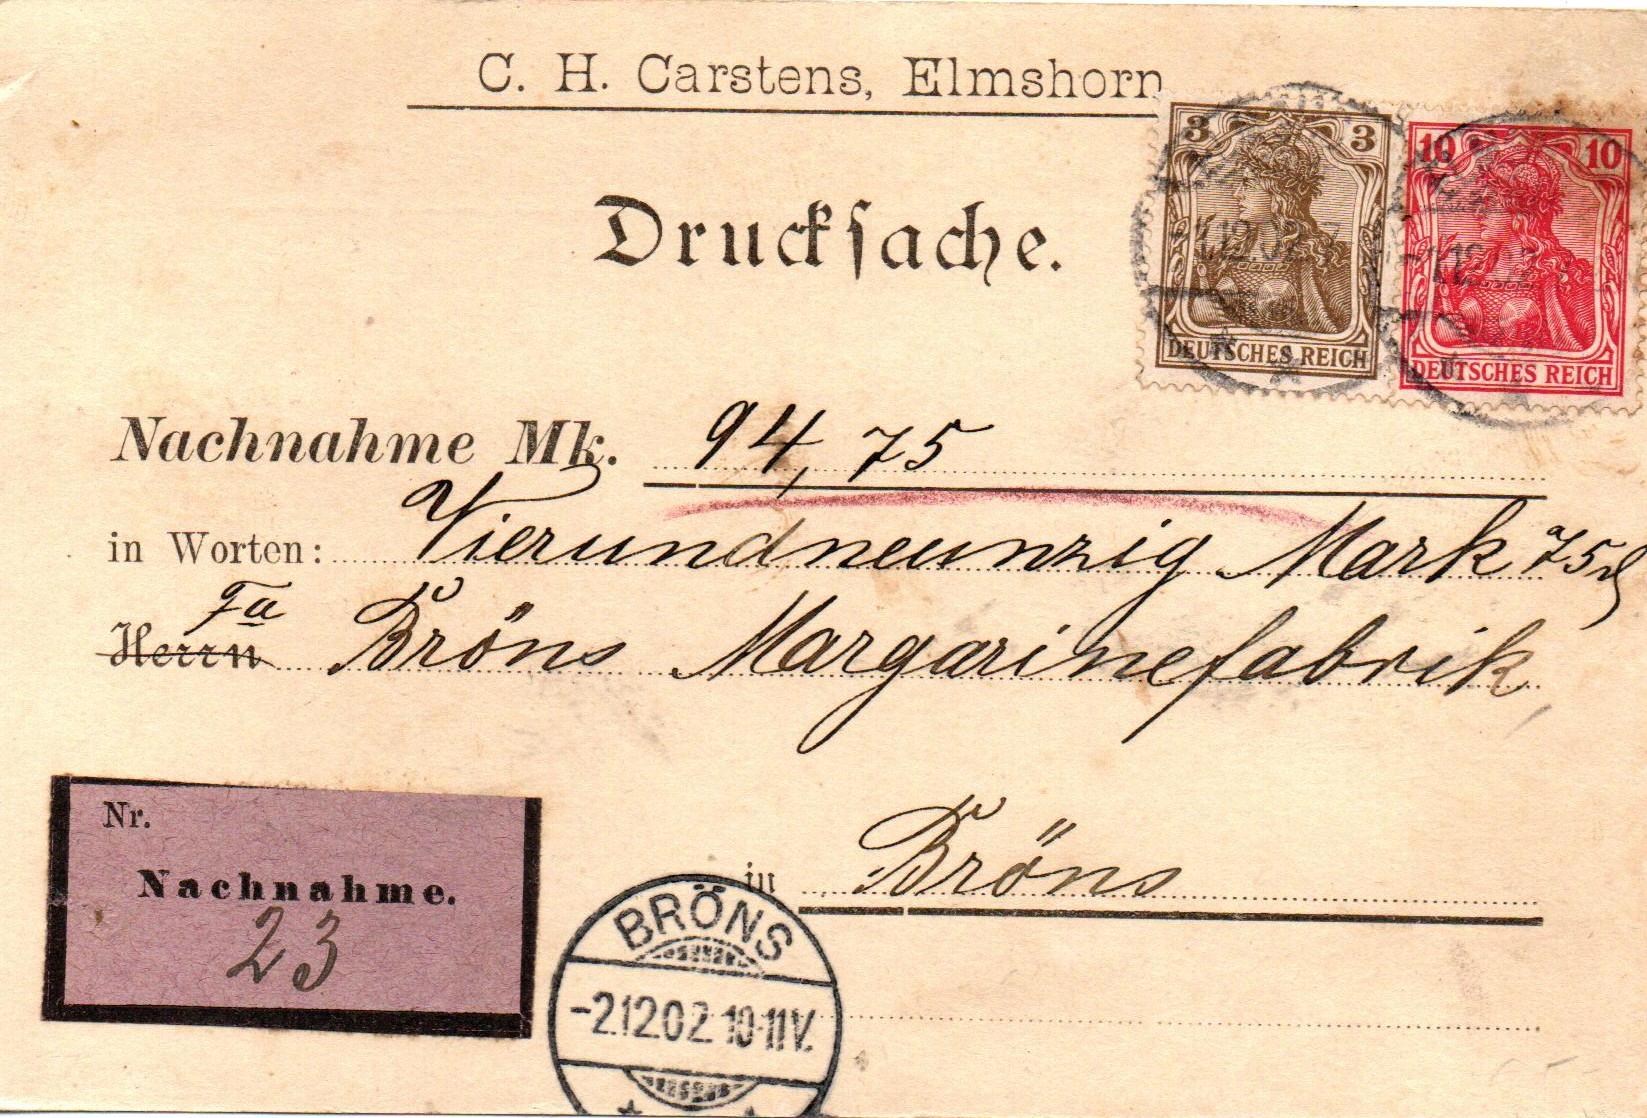 C. H. Carstens, Elmshorn
Drucksache.
3 3
DEUTSCHES REICH
10 10
DEUTSCHES REICH
Nachnahme Mk. 94,75
in Worten: Vierundneunzig Mark 75 ₰
Fa
Herrn Bröns Margarinefabrik
in Bröns
Nr.
Nachnahme.
23
BRÖNS
-2.12.02. 10-11V.